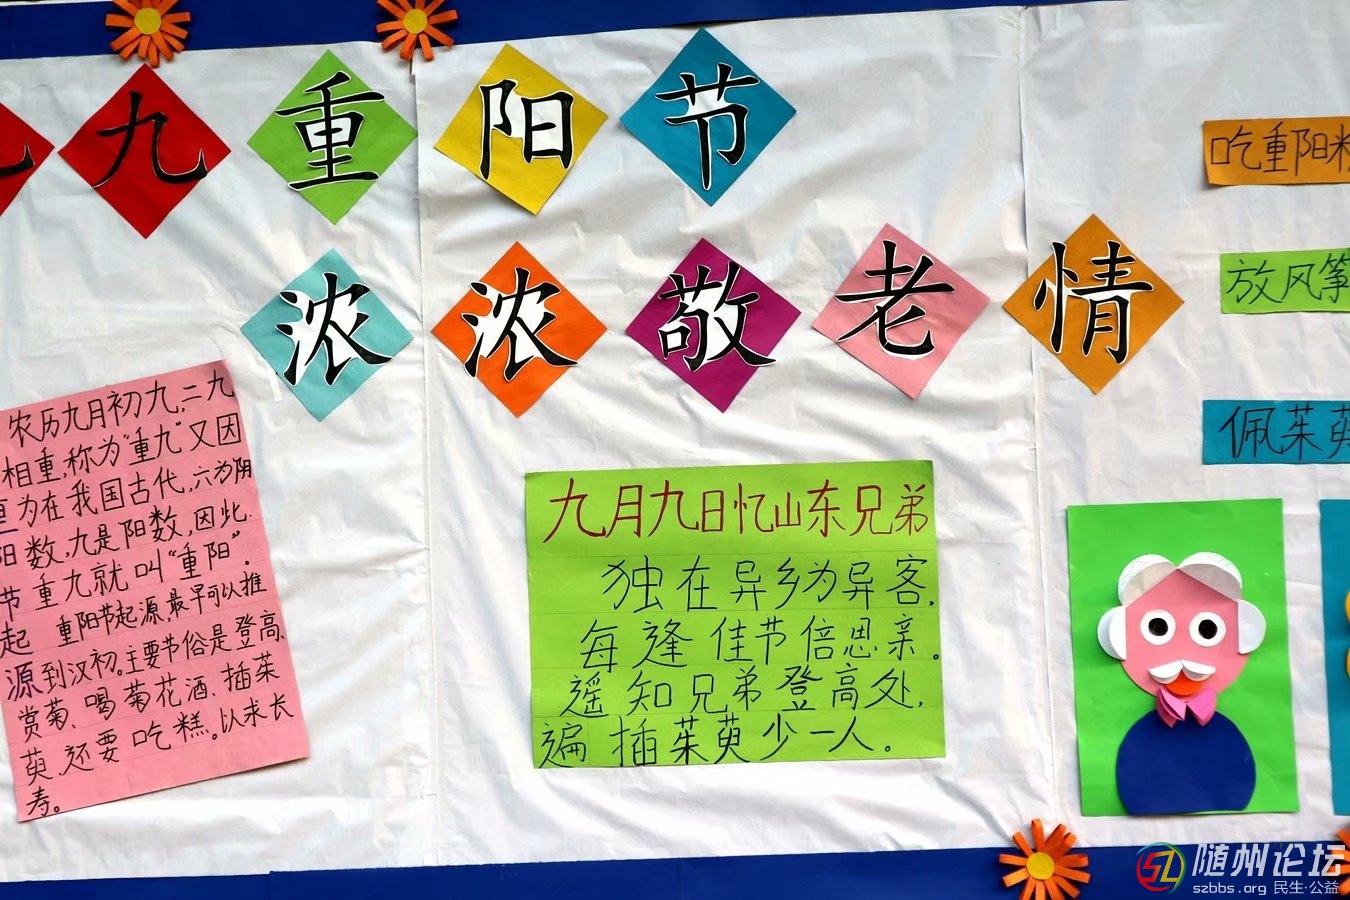 九重阳节
浓浓敬老情
农历九月初九,二九
相重,称为"重九"又因
为在我国古代,六为阴
阳数,九是阳数,因此.
节重九就叫"重阳".
起 重阳节起源,最早可以推
源到汉初。主要节俗是登高、
赏菊、喝菊花酒、插茱
萸、还要吃糕。以求长
寿。
九月九日忆山东兄弟
独在异乡为异客,
每逢佳节倍思亲。
遥知兄弟登高处,
遍插茱萸少一人。
吃重阳
放风筝
佩茱萸
随州论坛
szbbs.org 民生·公益